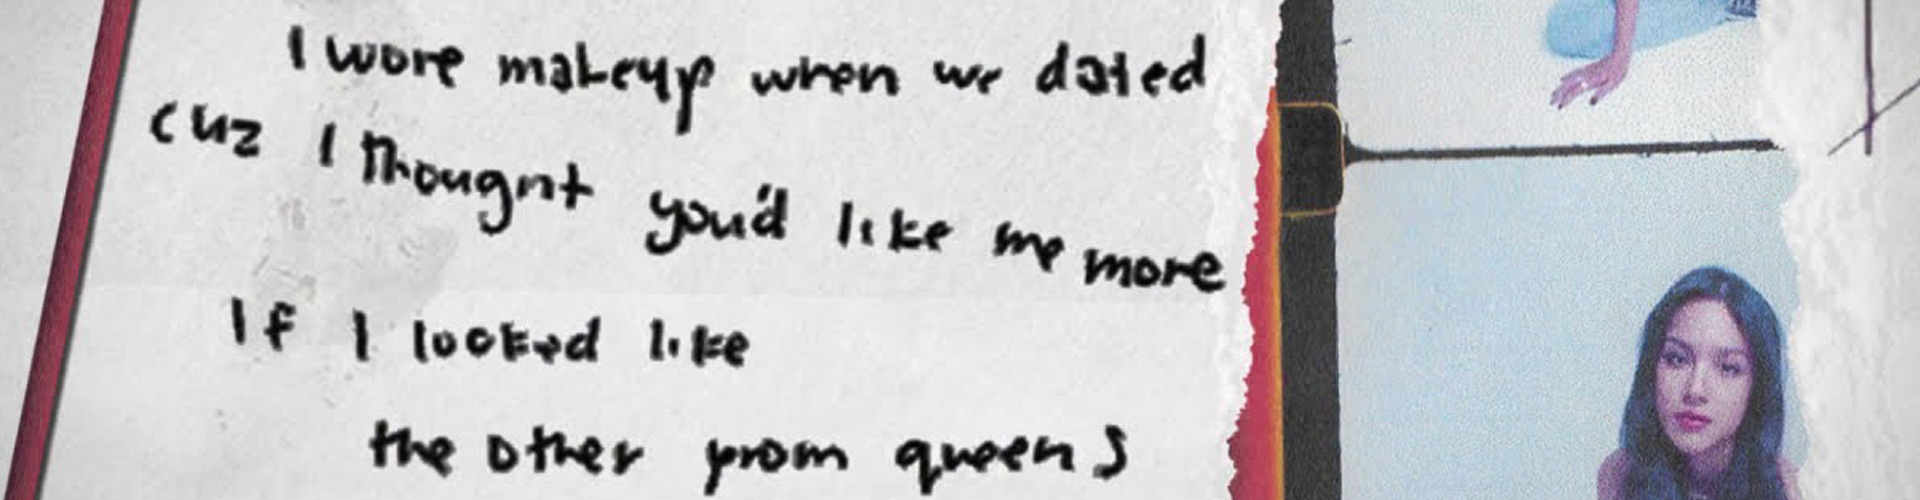 I wore makeup when we dated
cuz I thought you'd like me more
If I looked like
the other prom queens